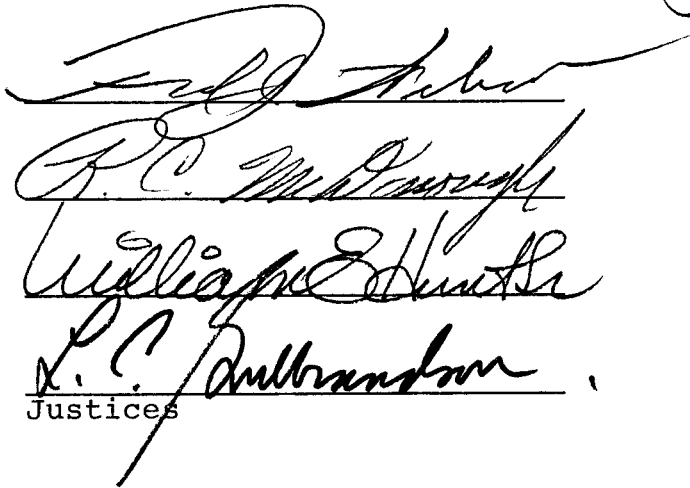 Fred J. Weber
R. C. McDonough
William E Hunt Sr
L. C. Gulbrandson
Justices